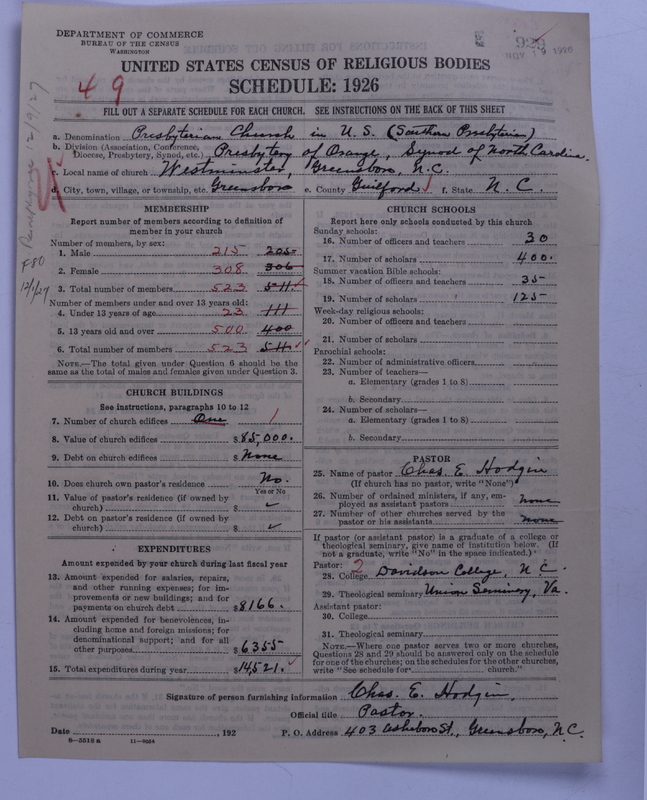 DEPARTMENT OF COMMERCE
BUREAU OF THE CENSUS
WASHINGTON
929
NOV 19 1926
UNITED STATES CENSUS OF RELIGIOUS BODIES
SCHEDULE: 1926
49
FILL OUT A SEPARATE SCHEDULE FOR EACH CHURCH. SEE INSTRUCTIONS ON THE BACK OF THIS SHEET
a. Denomination Presbyterian Church in U. S. (Southern Presbyterian)
b. Division (Association, Conference, Diocese, Presbytery, Synod, etc.) Presbytery of Orange, Synod of North Carolina.
c. Local name of church Westminster, Greensboro, N.C.
d. City, town, village, or township, etc. Greensboro e. County Guilford f. State N. C.
12/9/27
F80
12/1/27
MEMBERSHIP
Report number of members according to definition of
member in your church
Number of members, by sex:
1. Male 215 205
2. Female 308 306
3. Total number of members 523 511
Number of members under and over 13 years old:
4. Under 13 years of age 23 111
5. 13 years old and over 500 400
6. Total number of members 523 511
NOTE.—The total given under Question 6 should be
same as the total of males and females given under Question 3.
CHURCH BUILDINGS
See instructions, paragraphs 10 to 12
7. Number of church edifices One 1
8. Value of church edifices $85,000.
9. Debt on church edifices $ None
10. Does church own pastor's residence No.
Yes or No
11. Value of pastor's residence (if owned by
church) $ ✓
12. Debt on pastor's residence (if owned by
church) $ ✓
EXPENDITURES
Amount expended by your church during last fiscal year
13. Amount expended for salaries, repairs,
and other running expenses; for im-
provements or new buildings; and for
payments on church debt $8166.
14. Amount expended for benevolences, in-
cluding home and foreign missions; for
denominational support; and for all
other purposes $6355
15. Total expenditures during year $14,521.
CHURCH SCHOOLS
Report here only schools conducted by this church
Sunday schools:
16. Number of officers and teachers 30
17. Number of scholars 400.
Summer vacation Bible schools:
18. Number of officers and teachers 35
19. Number of scholars 125
Week-day religious schools:
20. Number of officers and teachers
21. Number of scholars
Parochial schools:
22. Number of administrative officers
23. Number of teachers—
a. Elementary (grades 1 to 8)
b. Secondary
24. Number of scholars—
a. Elementary (grades 1 to 8)
b. Secondary
PASTOR
25. Name of pastor Chas. E. Hodgin
(If church has no pastor, write "None")
26. Number of ordained ministers, if any, em-
ployed as assistant pastors none
27. Number of other churches served by the
pastor or his assistants none
If pastor (or assistant pastor) is a graduate of a college or
theological seminary, give name of institution below. (If
not a graduate, write "No" in the space indicated.)
Pastor: 2
28. College Davidson College, N. C.
29. Theological seminary Union Seminary, Va.
Assistant pastor:
30. College
31. Theological seminary
NOTE.—Where one pastor serves two or more churches,
Questions 28 and 29 should be answered only on the schedule
for one of the churches; on the schedules for the other churches,
write "See schedule for church."
Signature of person furnishing information Chas. E. Hodgin
Official title Pastor.
Date , 192 P. O. Address 403 Asheboro St., Greensboro, N.C.
8—5518a 11—9064